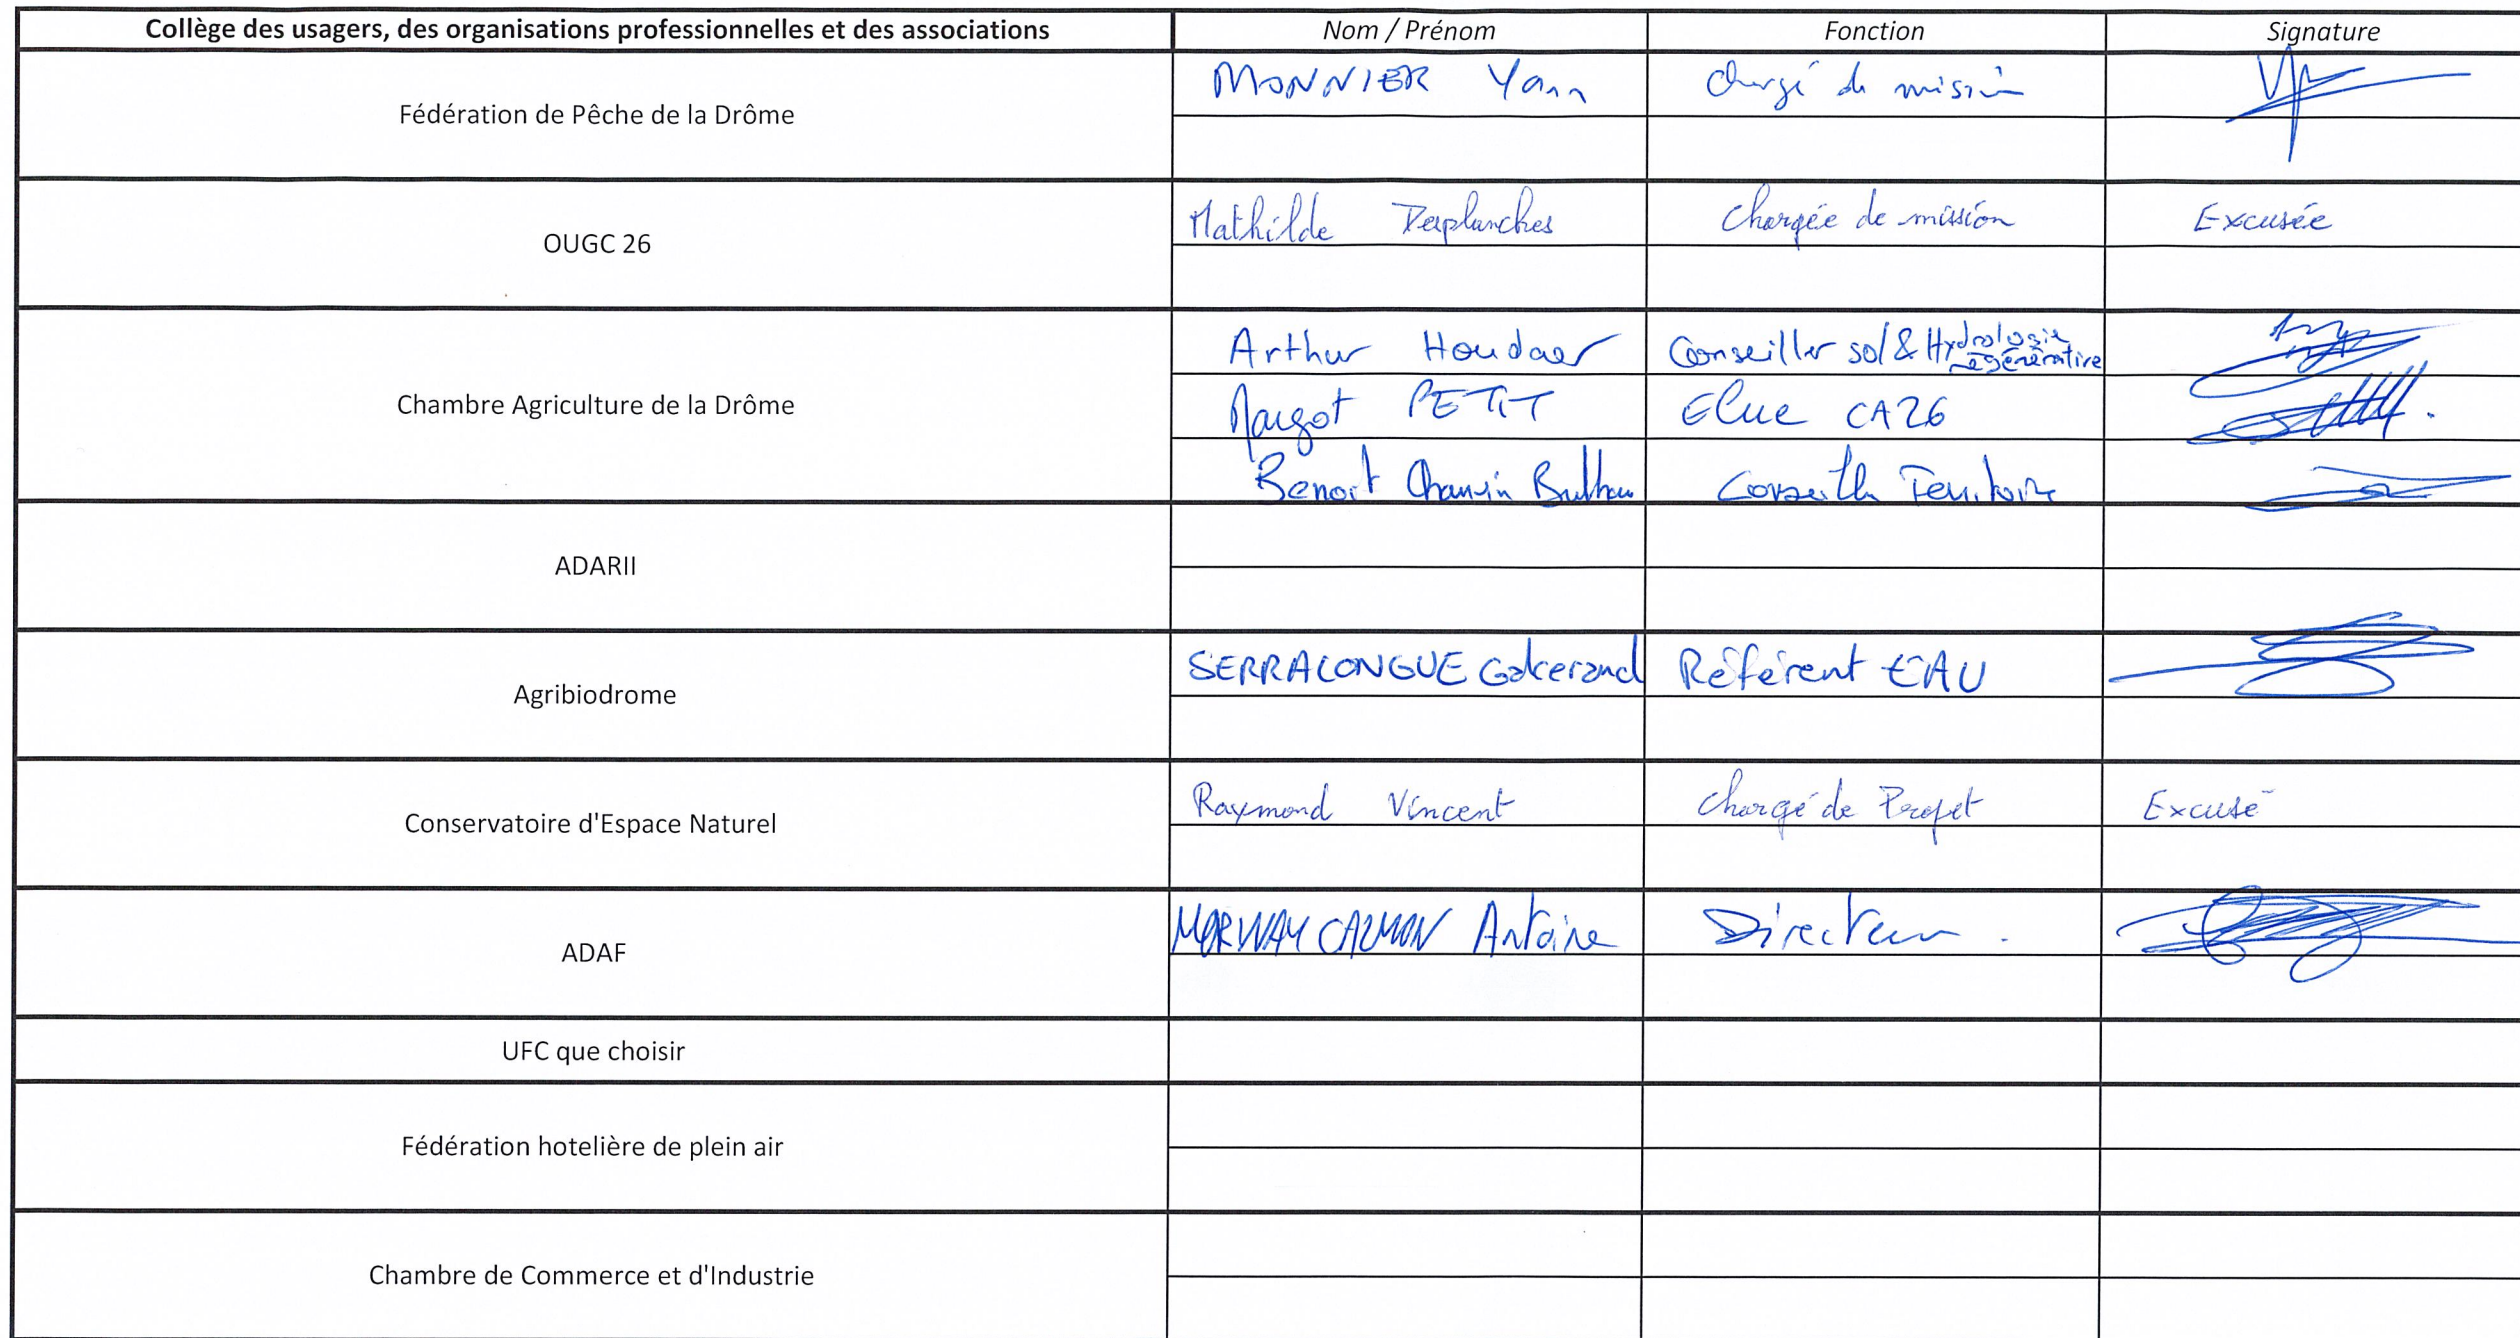 Collège des usagers, des organisations professionnelles et des associations Nom / Prénom Fonction Signature
Fédération de Pêche de la Drôme
MONNIER Yann Chargé de mission
OUGC 26
Mathilde Desplanches Chargée de mission Excusée
Chambre Agriculture de la Drôme
Arthur Houdaer Conseiller sol & Hydrologie
régénérative
Margot PETIT Elue CA26
Benoit Chauvin Conseiller Territoire
ADARII
Agribiodrome
SERRALONGUE Galcerand Référent EAU
Conservatoire d'Espace Naturel
Raymond Vincent chargé de Projet Excusé
ADAF
Antoine Directeur.
UFC que choisir
Fédération hotelière de plein air
Chambre de Commerce et d'Industrie